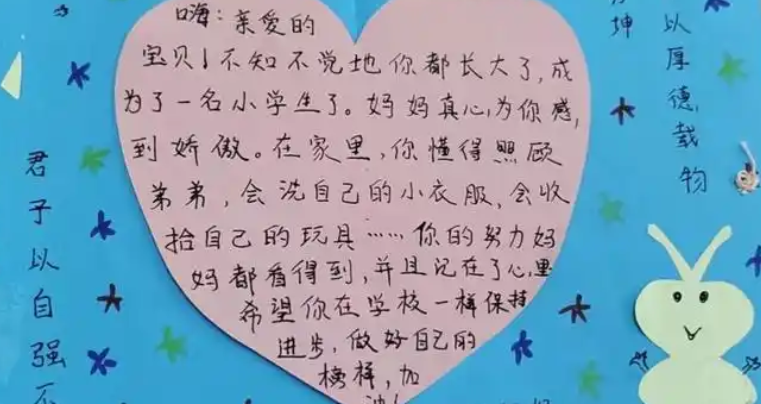 嗨：亲爱的
宝贝！不知不觉地你都长大了，成
为了一名小学生了。妈妈真心为你感
到娇傲。在家里，你懂得照顾
弟弟，会洗自己的小衣服，会收
拾自己的玩具……你的努力妈
妈都看得到，并且记在了心里
希望你在学校一样保持
进步，做好自己的
榜样，加
油！
君子以自强不
坤
以厚德载物